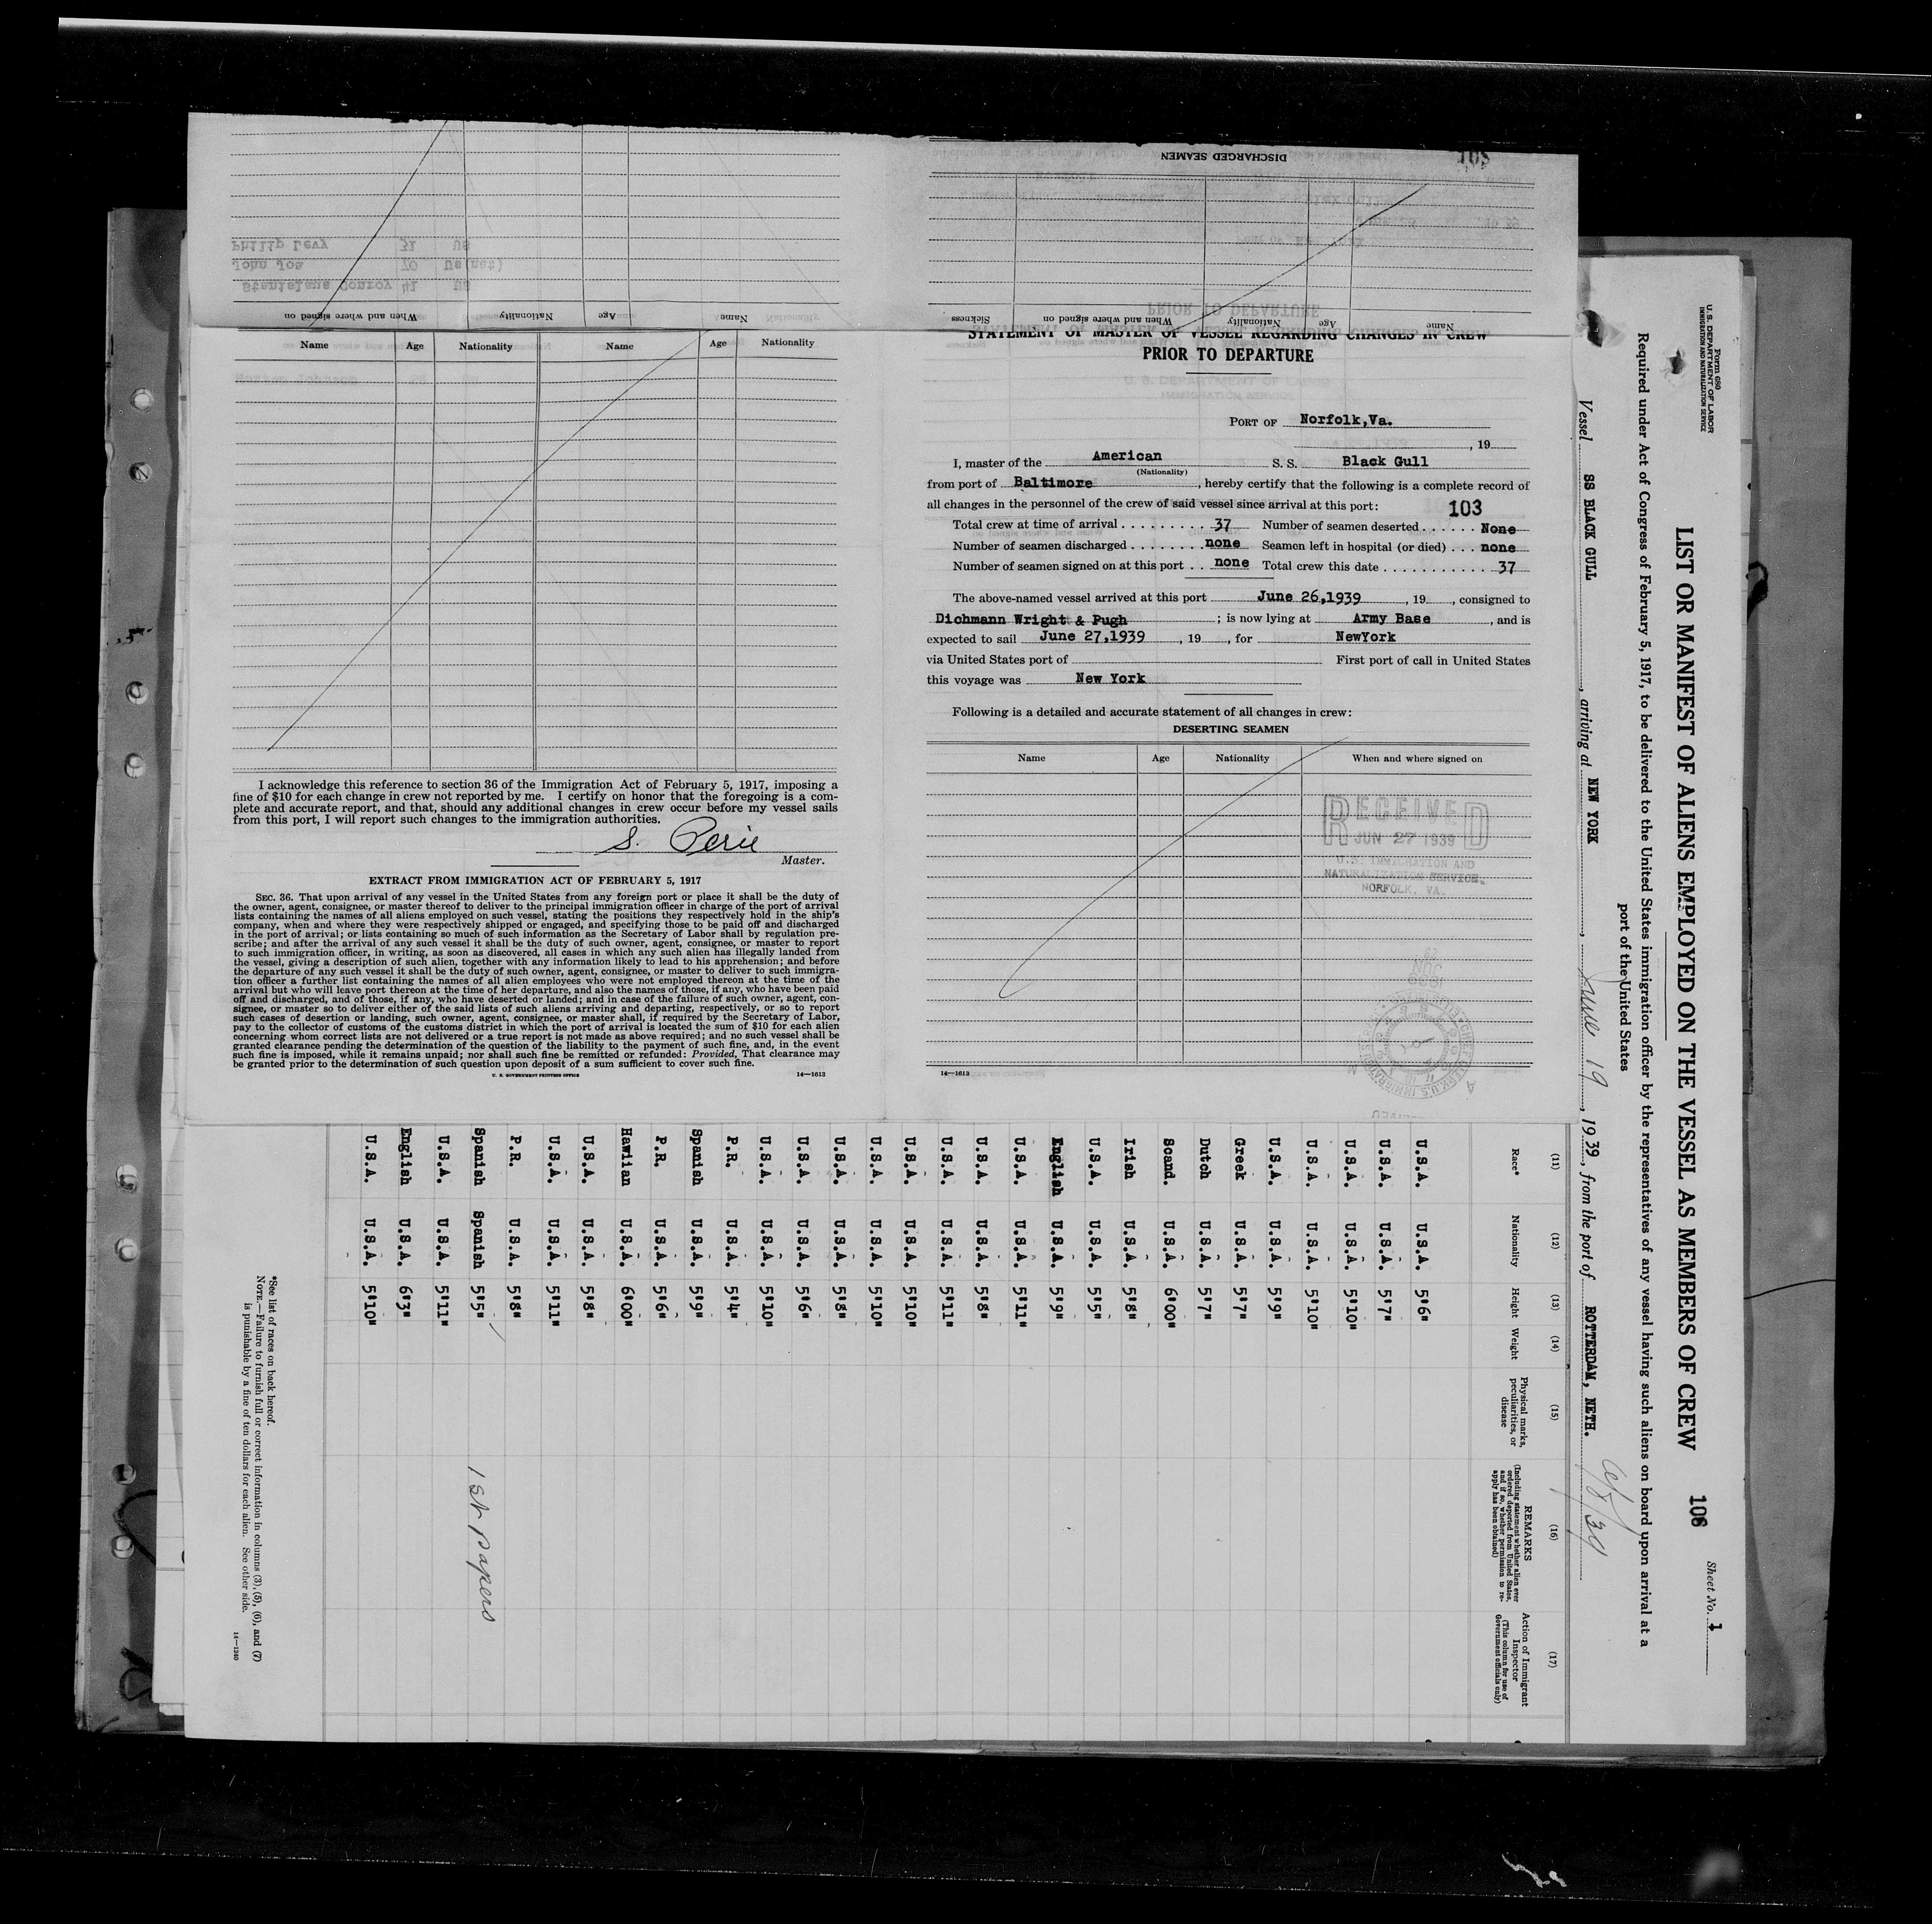 DISCHARGED SEAMEN
103
Philip Levy 31 US
John Jos 70 Us(nat)
Stanislaus Conroy 41 US
Name Age Nationality When and where signed on
Name Age Nationality When and where signed on Sickness
Name Age Nationality Name Age Nationality
I acknowledge this reference to section 36 of the Immigration Act of February 5, 1917, imposing a
fine of $10 for each change in crew not reported by me. I certify on honor that the foregoing is a com-
plete and accurate report, and that, should any additional changes in crew occur before my vessel sails
from this port, I will report such changes to the immigration authorities.
S. Perie
Master.
EXTRACT FROM IMMIGRATION ACT OF FEBRUARY 5, 1917
SEC. 36. That upon arrival of any vessel in the United States from any foreign port or place it shall be the duty of
the owner, agent, consignee, or master thereof to deliver to the principal immigration officer in charge of the port of arrival
lists containing the names of all aliens employed on such vessel, stating the positions they respectively hold in the ship's
company, when and where they were respectively shipped or engaged, and specifying those to be paid off and discharged
in the port of arrival; or lists containing so much of such information as the Secretary of Labor shall by regulation pre-
scribe; and after the arrival of any such vessel it shall be the duty of such owner, agent, consignee, or master to report
to such immigration officer, in writing, as soon as discovered, all cases in which any such alien has illegally landed from
the vessel, giving a description of such alien, together with any information likely to lead to his apprehension; and before
the departure of any such vessel it shall be the duty of such owner, agent, consignee, or master to deliver to such immigra-
tion officer a further list containing the names of all alien employees who were not employed thereon at the time of the
arrival but who will leave port thereon at the time of her departure, and also the names of those, if any, who have been paid
off and discharged, and of those, if any, who have deserted or landed; and in case of the failure of such owner, agent, con-
signee, or master so to deliver either of the said lists of such aliens arriving and departing, respectively, or so to report
such cases of desertion or landing, such owner, agent, consignee, or master shall, if required by the Secretary of Labor,
pay to the collector of customs of the customs district in which the port of arrival is located the sum of $10 for each alien
concerning whom correct lists are not delivered or a true report is not made as above required; and no such vessel shall be
granted clearance pending the determination of the question of the liability to the payment of such fine, and, in the event
such fine is imposed, while it remains unpaid; nor shall such fine be remitted or refunded: Provided, That clearance may
be granted prior to the determination of such question upon deposit of a sum sufficient to cover such fine.
U. S. GOVERNMENT PRINTING OFFICE 14—1613
STATEMENT OF MASTER OF VESSEL REGARDING CHANGES IN CREW
PRIOR TO DEPARTURE
PORT OF Norfolk,Va.
, 19
I, master of the American S. S. Black Gull
(Nationality)
from port of Baltimore, hereby certify that the following is a complete record of
all changes in the personnel of the crew of said vessel since arrival at this port: 103
Total crew at time of arrival . . . . . . . . . . 37 Number of seamen deserted . . . . . . None
Number of seamen discharged . . . . . . . . none Seamen left in hospital (or died) . . . none
Number of seamen signed on at this port . . none Total crew this date . . . . . . . . . . . . 37
The above-named vessel arrived at this port June 26,1939, 19, consigned to
Dichmann Wright & Pugh; is now lying at Army Base, and is
expected to sail June 27,1939, 19, for NewYork
via United States port of First port of call in United States
this voyage was New York
Following is a detailed and accurate statement of all changes in crew:
DESERTING SEAMEN
Name Age Nationality When and where signed on
RECEIVED
JUN 27 1939
U.S. IMMIGRATION AND
NATURALIZATION SERVICE.
NORFOLK, VA.
14—1613
Form 680
U. S. DEPARTMENT OF LABOR
IMMIGRATION AND NATURALIZATION SERVICE
Sheet No. 1
LIST OR MANIFEST OF ALIENS EMPLOYED ON THE VESSEL AS MEMBERS OF CREW 106
Required under Act of Congress of February 5, 1917, to be delivered to the United States immigration officer by the representatives of any vessel having such aliens on board upon arrival at a
port of the United States
Vessel SS BLACK GULL, arriving at NEW YORK, June 19, 1939, from the port of ROTTERDAM, NETH.
6/8/39
(11) (12) (13) (14) (15) (16) (17)
Race* Nationality Height Weight Physical marks, peculiarities, or disease REMARKS (Including statement whether alien ever ordered deported from United States, and if so, whether permission to re-apply has been obtained) Action of Immigrant Inspector (This column for use of Government officials only)
U.S.A. U.S.A. 5'6"
U.S.A. U.S.A. 5'7"
U.S.A. U.S.A. 5'10"
U.S.A. U.S.A. 5'10"
U.S.A. U.S.A. 5'9"
Greek U.S.A. 5'7"
Dutch U.S.A. 5'7"
Scand. U.S.A. 6'00"
Irish U.S.A. 5'8"
U.S.A. U.S.A. 5'5"
English U.S.A. 5'9"
U.S.A. U.S.A. 5'11"
U.S.A. U.S.A. 5'8"
U.S.A. U.S.A. 5'11"
U.S.A. U.S.A. 5'10"
U.S.A. U.S.A. 5'10"
U.S.A. U.S.A. 5'8"
U.S.A. U.S.A. 5'6"
U.S.A. U.S.A. 5'10"
P.R. U.S.A. 5'4"
Spanish U.S.A. 5'9"
P.R. U.S.A. 5'6"
Hawiian U.S.A. 6'00"
U.S.A. U.S.A. 5'8"
U.S.A. U.S.A. 5'11"
P.R. U.S.A. 5'8"
Spanish Spanish 5'5" 1st papers
U.S.A. U.S.A. 5'11"
English U.S.A. 6'3"
U.S.A. U.S.A. 5'10"
*See list of races on back hereof.
NOTE.—Failure to furnish full or correct information in columns (3), (5), (6), and (7)
is punishable by a fine of ten dollars for each alien. See other side.
14—1240